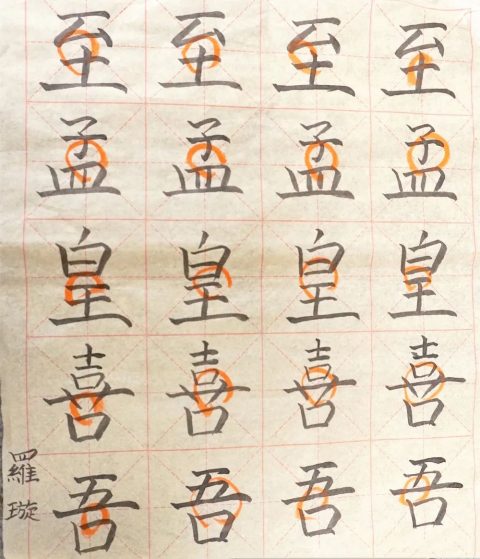 至至至至
孟孟孟孟
皇皇皇皇
喜喜喜喜
吾吾吾吾
羅璇